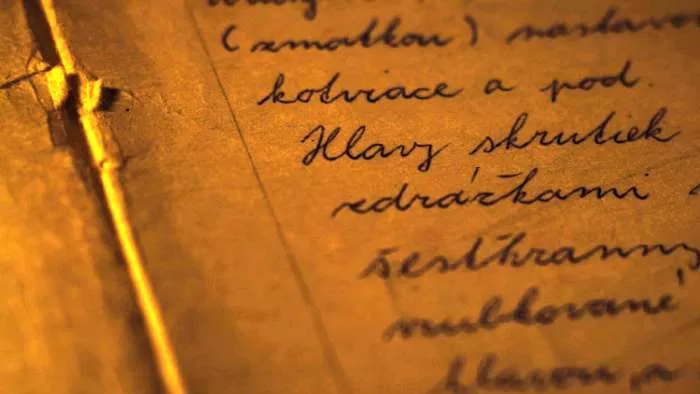 (zmatkou) nastavo
kotviace a pod.
Hlavy skrutiek
zdrážkami
šesťhranný
vrubkované
hlavou, a